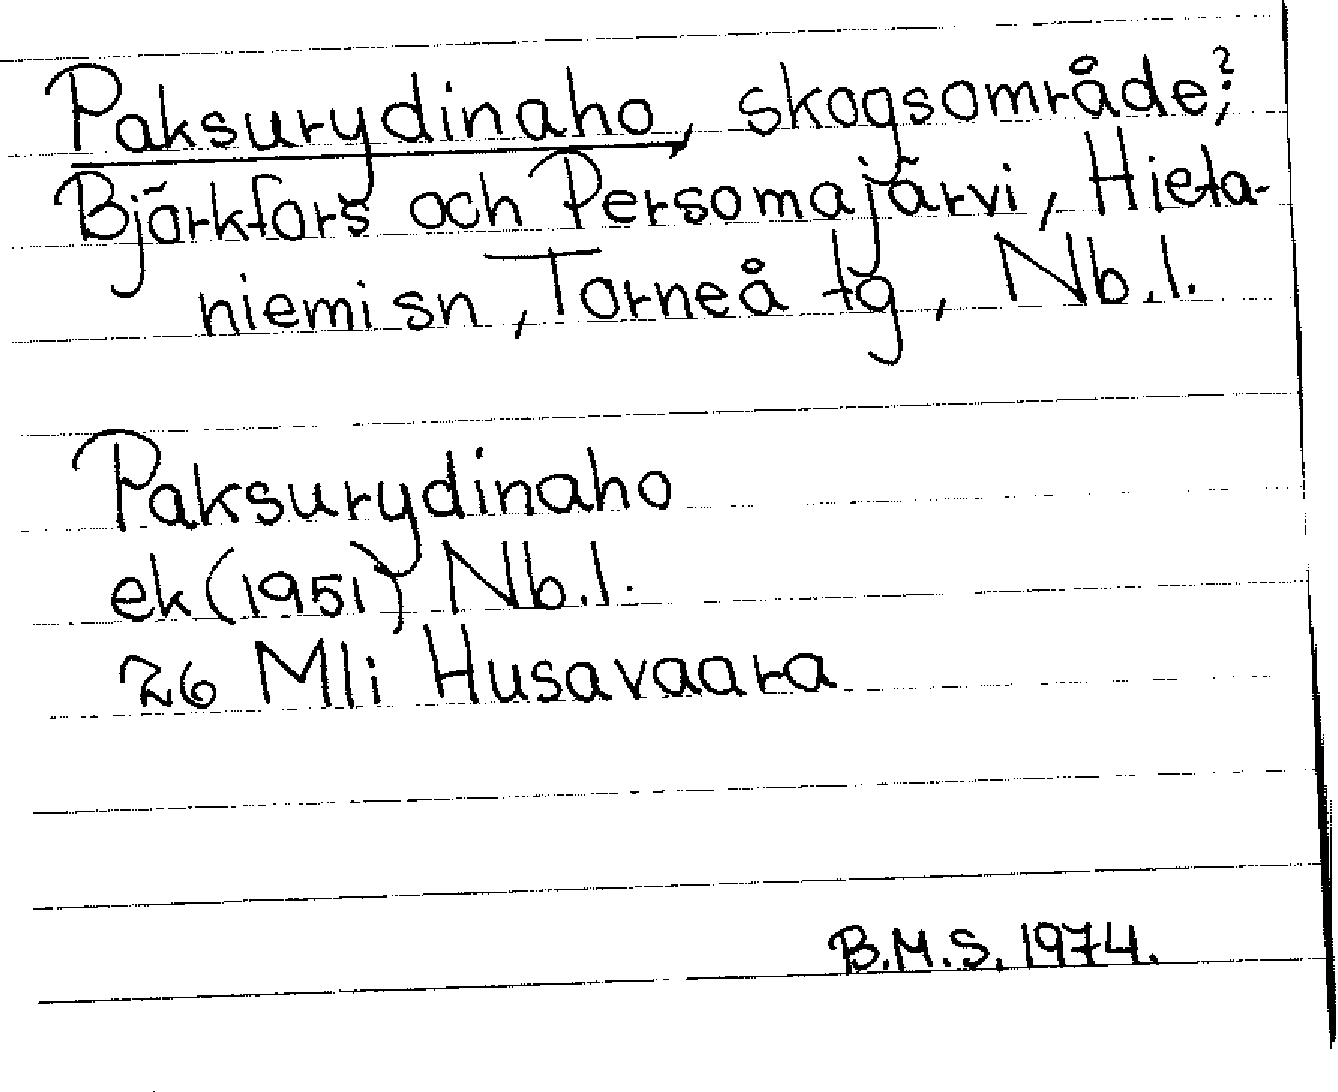 Paksurydinaho, skogsområde?;
Björkfors och Persomajärvi, Hieta-
niemi sn, Torneå tg, Nb.l.
Paksurydinaho
ek (1951) Nb.l.
26 Mli Husavaara
B.M.S. 1974.